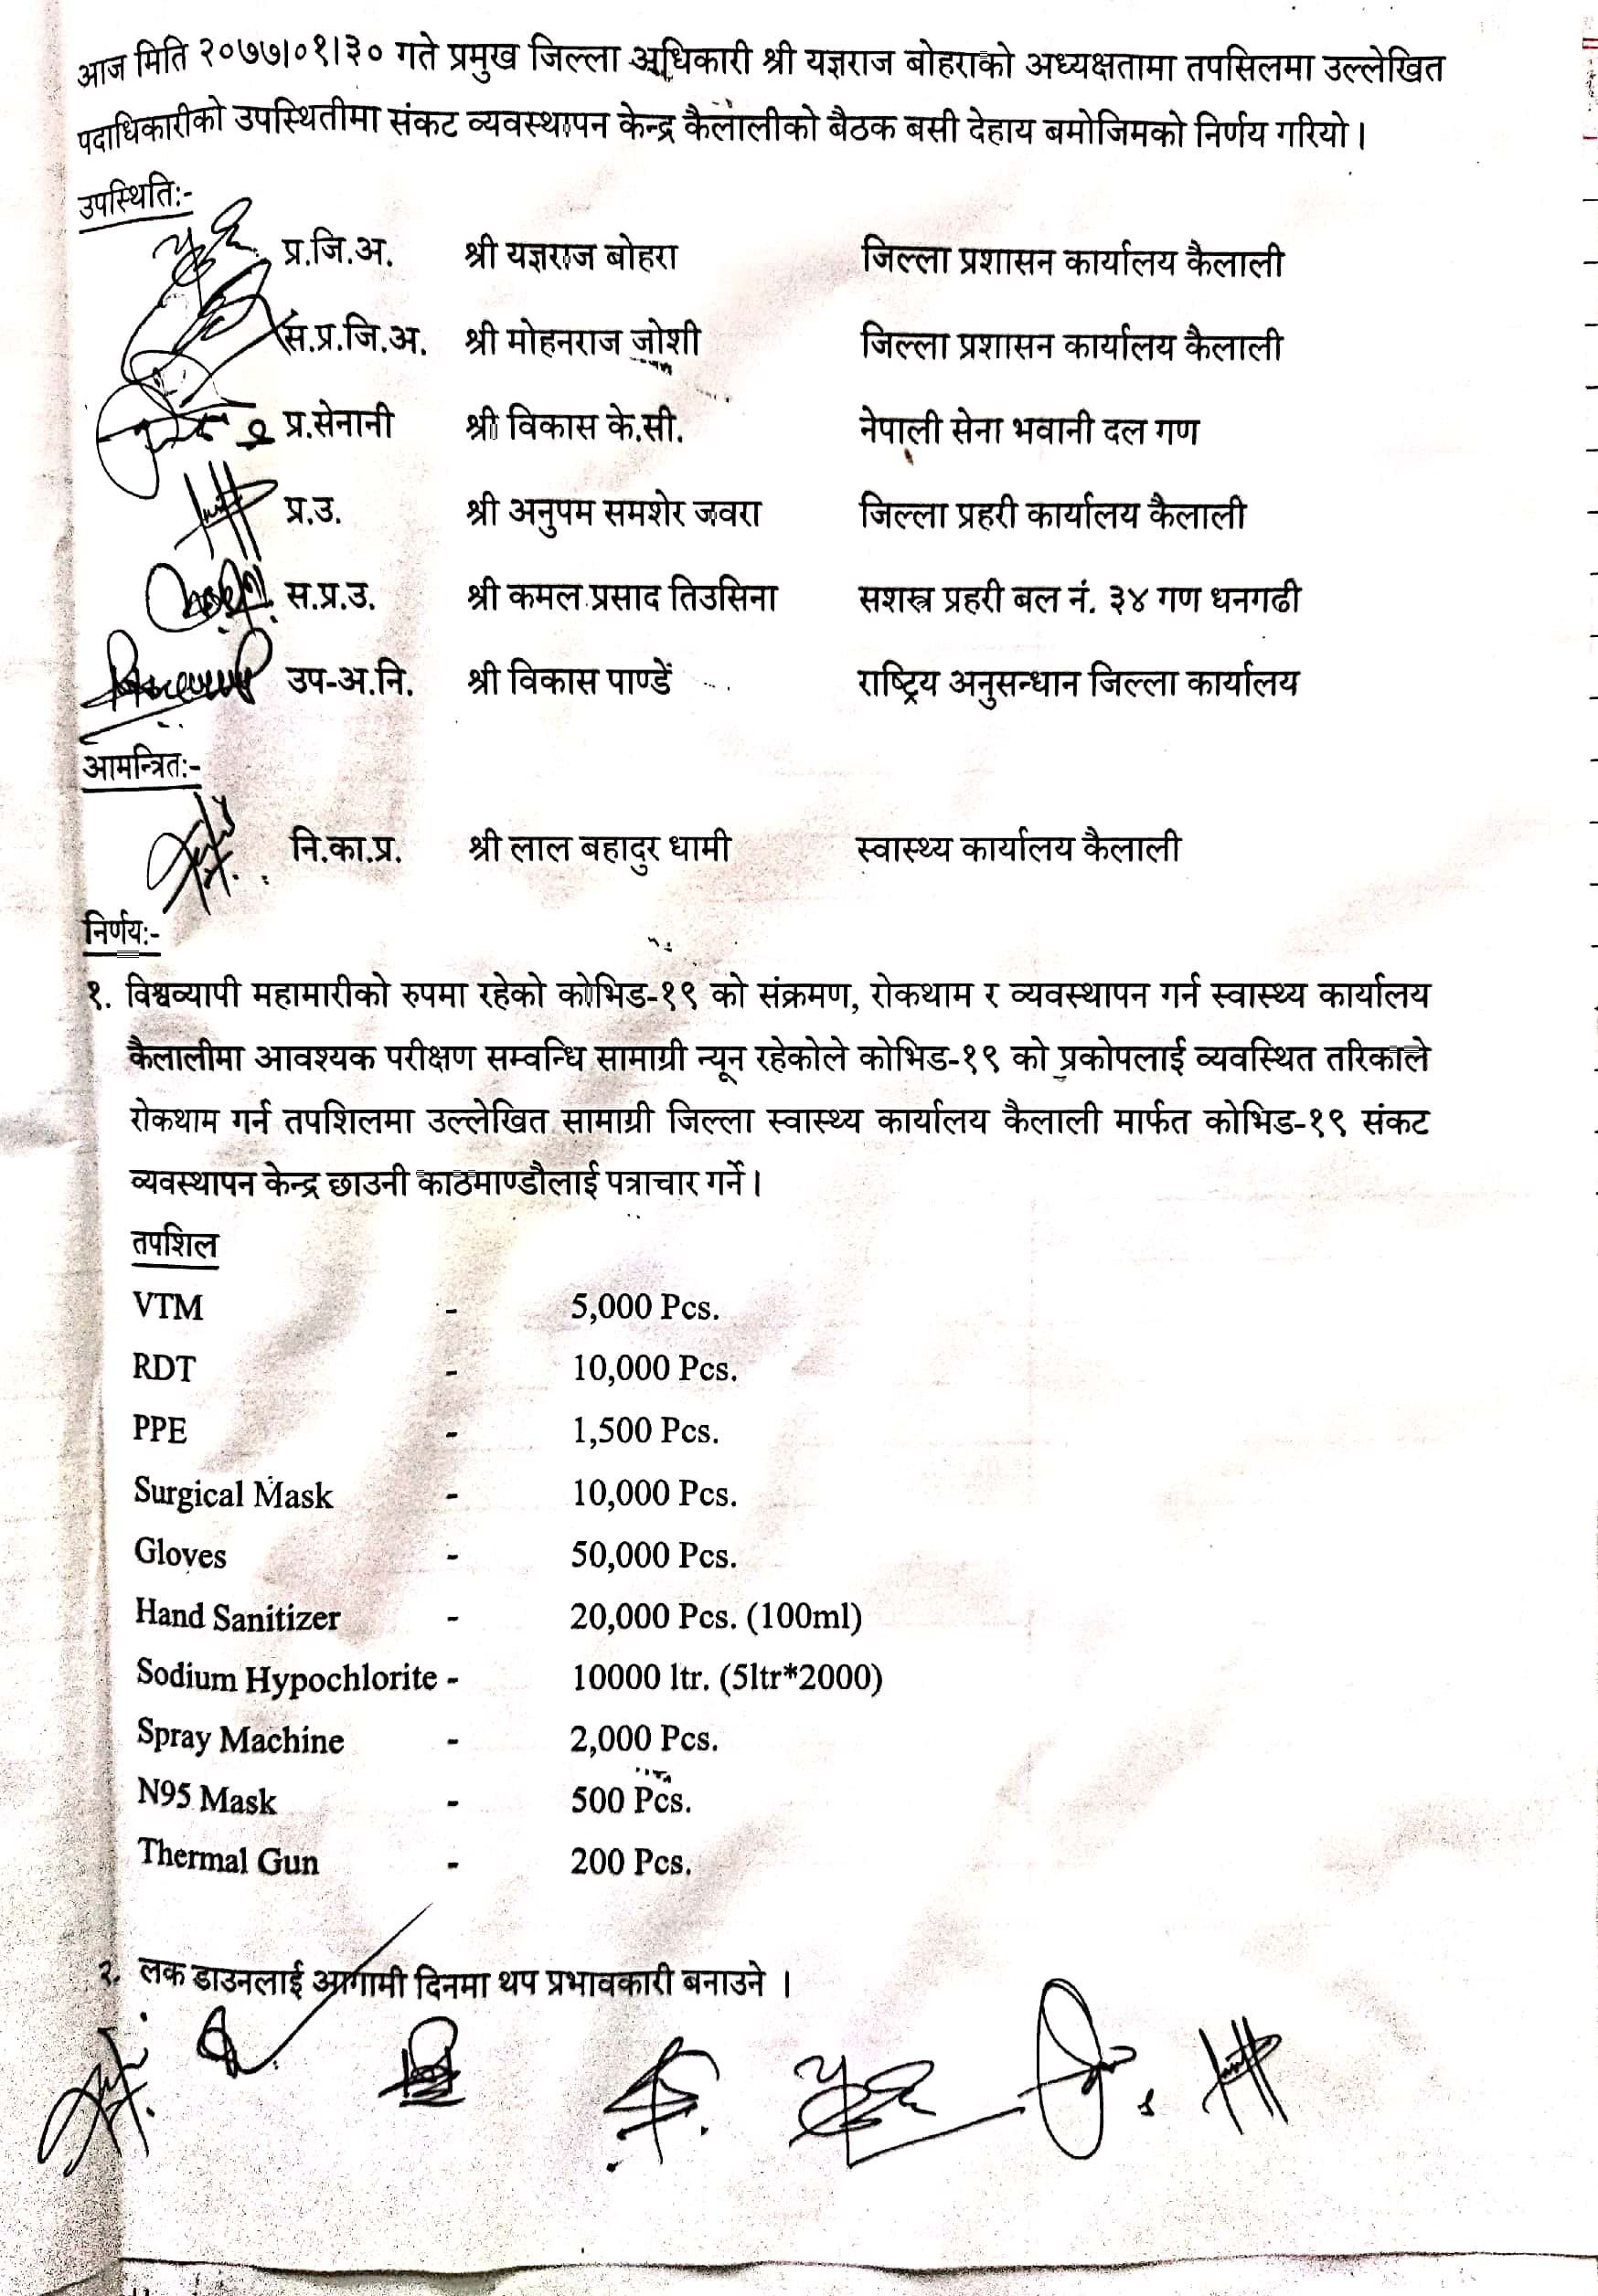 आज मिति २०७७।०१।३० गते प्रमुख जिल्ला अधिकारी श्री यज्ञराज बोहराको अध्यक्षतामा तपसिलमा उल्लेखित
पदाधिकारीको उपस्थितीमा संकट व्यवस्थापन केन्द्र कैलालीको बैठक बसी देहाय बमोजिमको निर्णय गरियो।
उपस्थिति:-
प्र.जि.अ. श्री यज्ञराज बोहरा जिल्ला प्रशासन कार्यालय कैलाली
स.प्र.जि.अ. श्री मोहनराज जोशी जिल्ला प्रशासन कार्यालय कैलाली
प्र.सेनानी श्री विकास के.सी. नेपाली सेना भवानी दल गण
प्र.उ. श्री अनुपम समशेर जवरा जिल्ला प्रहरी कार्यालय कैलाली
स.प्र.उ. श्री कमल प्रसाद तिउसिना सशस्त्र प्रहरी बल नं. ३४ गण धनगढी
उप-अ.नि. श्री विकास पाण्डें राष्ट्रिय अनुसन्धान जिल्ला कार्यालय
आमन्त्रित:-
नि.का.प्र. श्री लाल बहादुर धामी स्वास्थ्य कार्यालय कैलाली
निर्णय:-
१. विश्वव्यापी महामारीको रुपमा रहेको कोभिड-१९ को संक्रमण, रोकथाम र व्यवस्थापन गर्न स्वास्थ्य कार्यालय
कैलालीमा आवश्यक परीक्षण सम्वन्धि सामाग्री न्यून रहेकोले कोभिड-१९ को प्रकोपलाई व्यवस्थित तरिकाले
रोकथाम गर्न तपशिलमा उल्लेखित सामाग्री जिल्ला स्वास्थ्य कार्यालय कैलाली मार्फत कोभिड-१९ संकट
व्यवस्थापन केन्द्र छाउनी काठमाण्डौलाई पत्राचार गर्ने।
तपशिल
VTM - 5,000 Pcs.
RDT - 10,000 Pcs.
PPE - 1,500 Pcs.
Surgical Mask - 10,000 Pcs.
Gloves - 50,000 Pcs.
Hand Sanitizer - 20,000 Pcs. (100ml)
Sodium Hypochlorite - 10000 ltr. (5ltr*2000)
Spray Machine - 2,000 Pcs.
N95 Mask - 500 Pcs.
Thermal Gun - 200 Pcs.
२. लक डाउनलाई आगामी दिनमा थप प्रभावकारी बनाउने ।